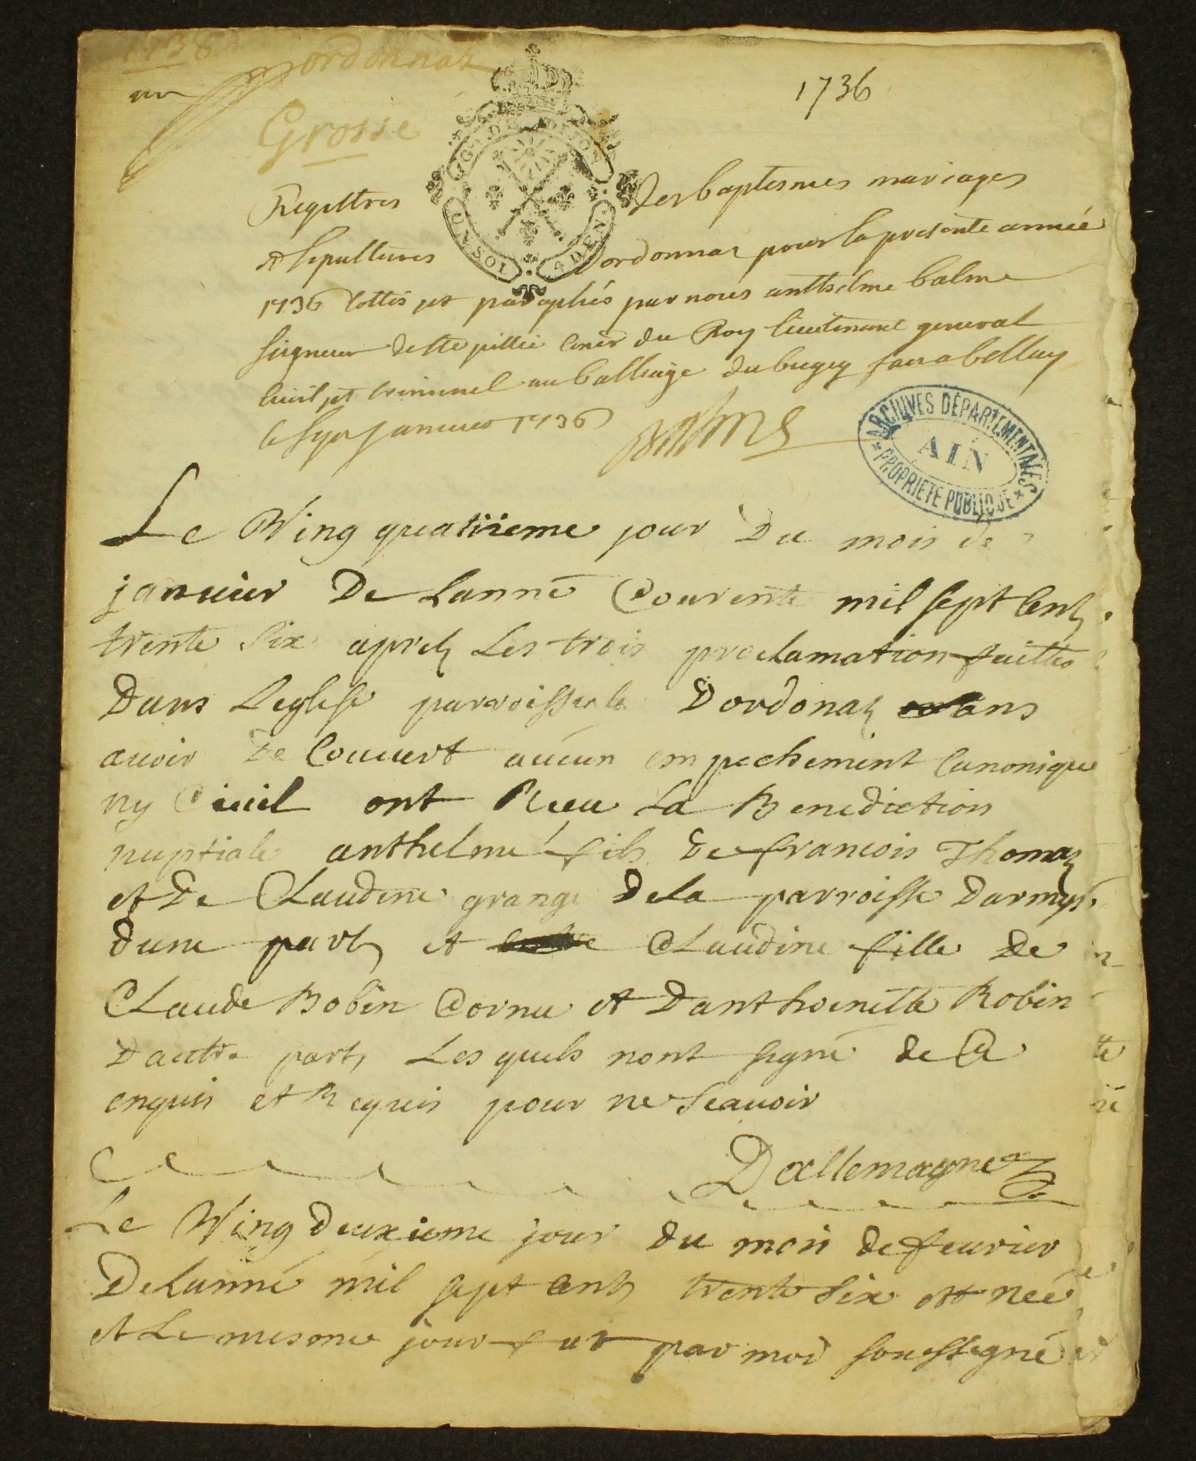 1736
ordonnaz
1736
un
Grosse
GN. DE DIJON
UN SOL 4 DEN
Registres des baptesmes mariages
et sepultures dordonnaz pour la presente année
1736 cottés et paraphés par nous anthelme balme
seigneur de ste pillie coner du Roy lieutenant general
civil et criminel au balliage du bugey seant a belley
le janvier 1736
balme
ARCHIVES DÉPARTEMENTALES
AIN
PROPRIÉTÉ PUBLIQUE
Le Ving quatrieme jour Du mois de
janvier De Lanné Courente mil sept Cent
trente six aprez Les trois proclamation faittes
Dans Leglise parroissialle Dordonaz sans
avoir De Couvert aucun empechement Canonique
ny Civil ont Receu La Benediction
nuptiale anthelme fils de francois Thomaz
et De Claudine grange De La parroisse Darmys
dune part et Claudine fille De
Claude Bobin Cornu et Danthoinette Robin
D'autre part, Les quels nont signé de Ce
enquis et Requis pour ne Scavoir
Dallemagne
Le Ving Deuxieme jour du mois de fevrier
De Lanné mil sept Cent trente Six est née
et Le mesme jour fut par moi soussigné